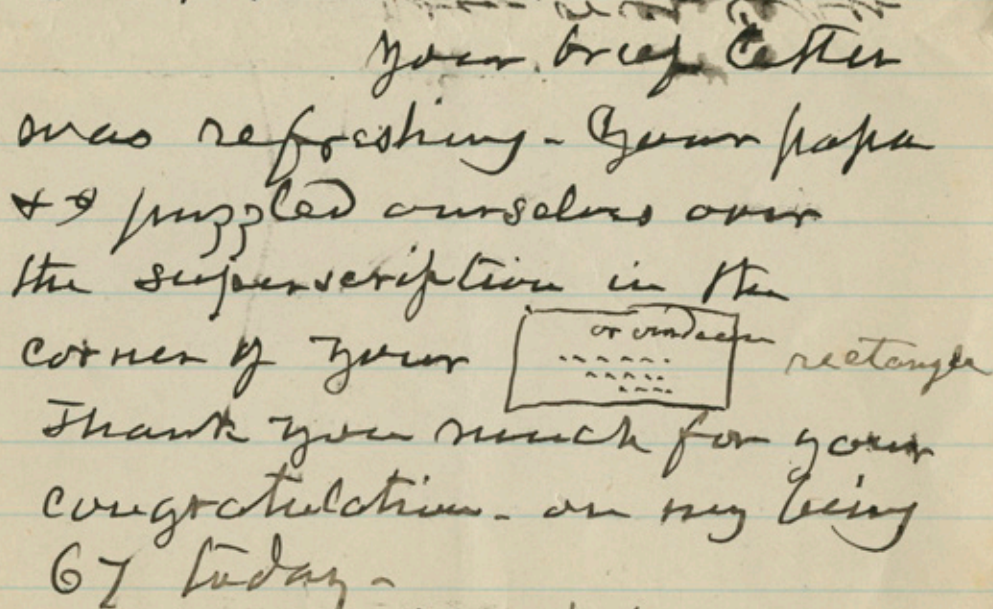 Your brief letter
was refreshing - Your papa
& I puzzled ourselves over
the superscription in the
corner of your rectangle
Thank you much for your
congratulation - on my being
67 today -